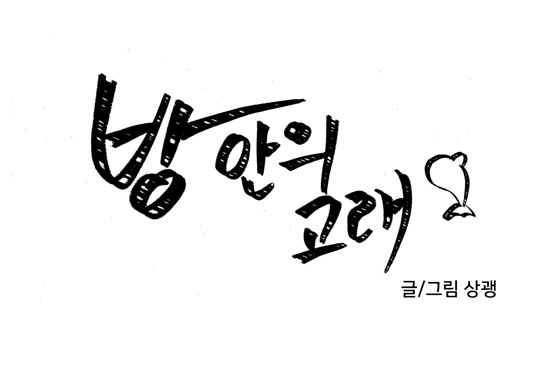 방 안의
고래
글/그림 상괭